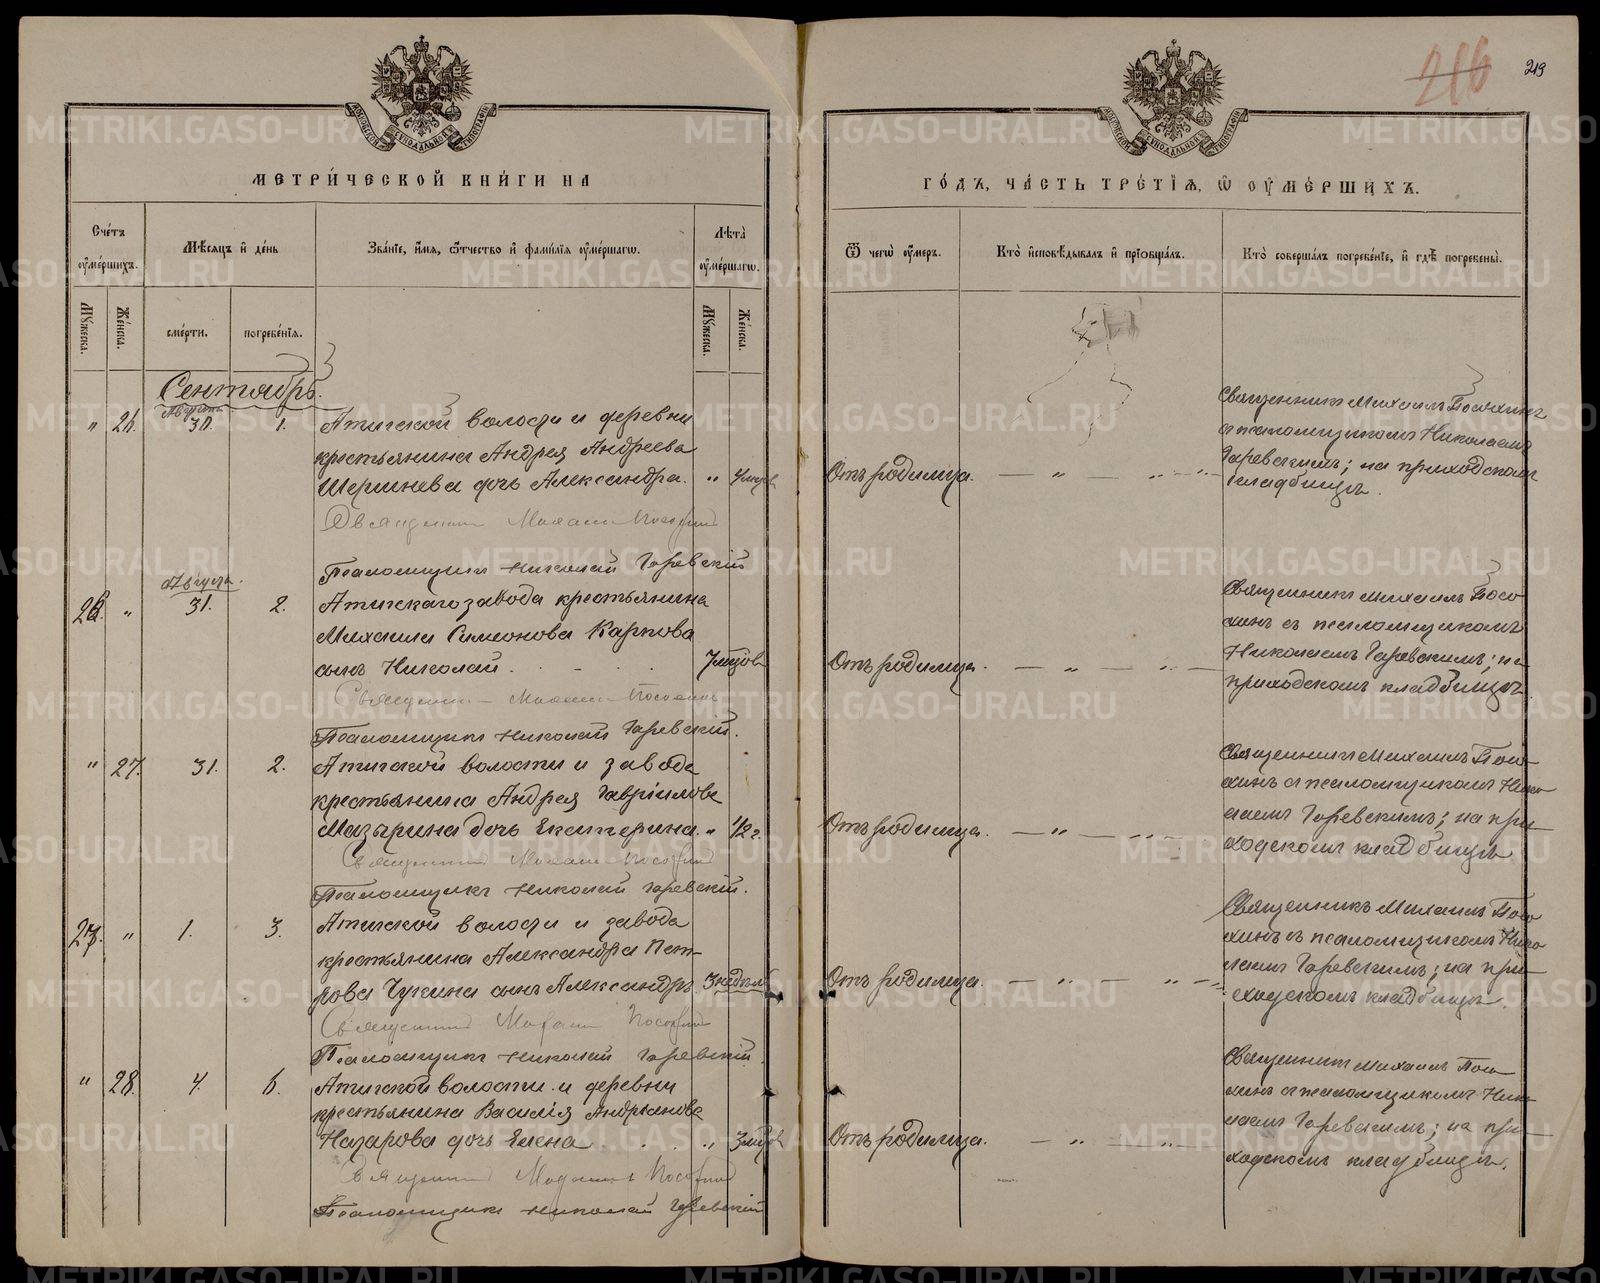 216
219
МЕТРИ́ЧЕСКОЙ КНИ́ГИ НА
ГО́ДЪ, ЧА́СТЬ ТРЕ́ТІѦ, Ѡ ОУМЕ́РШИХЪ.
Сче́тъ оуме́ршихъ.
Мѣ́сяцъ и де́нь
Зва́ніе, и́мя, ѻ́тчество и фами́лія оуме́ршагѡ.
Лѣта̀ оуме́ршагѡ.
Ѿ чегѡ̀ оу́меръ.
Кто̀ исповѣ́дывалъ и пріобща́лъ.
Кто̀ соверша́лъ погребе́ніе, и гдѣ̀ погребены̀.
Му́жеска.
Же́нска.
сме́рти.
погребе́нія.
Му́жеска.
Же́нска.
Сентябрь.
Августа
" 26. 30. 1.
Атигской волости и деревни
крестьянина Андрея Андреева
Шершнева дочь Александра. " 4 мцѣв
Священник Михаил Посохин
Псаломщикъ Николай Горевскій
Отъ родимца. — " — " — "
Священникъ Михаилъ Посохинъ
с псаломщикомъ Николаемъ
Горевскимъ; на приходскомъ
кладбищѣ.
Августа.
26. " 31. 2.
Атигскаго завода крестьянина
Михаила Симеонова Карпова
сынъ Николай. 7 мцов
Священник Михаил Посохин
Псаломщикъ Николай Горевскій.
Отъ родимца. — " — " —
Священникъ Михаилъ Посо
хинъ съ псаломщикомъ
Николаемъ Горевскимъ; на
приходскомъ кладбищѣ.
" 27. 31. 2.
Атигской волости и завода
крестьянина Андрея Гавріилова
Мазырина дочь Екатерина. " 1/2 г.
Священник Михаил Посохин
Псаломщикъ Николай Горевскій.
Отъ родимца. — " — " —
Священникъ Михаилъ Посо
хинъ с псаломщикомъ Нико
лаемъ Горевскимъ; на при
ходскомъ кладбищѣ
27. " 1. 3.
Атигской волости и завода
крестьянина Александра Пет-
рова Чукина сынъ Александръ. 3 недѣл.
Священник Михаил Посохин
Псаломщикъ Николай Горевскій.
Отъ родимца. — " — " —
Священникъ Михаилъ Посо
хинъ съ псаломщикомъ Нико
лаемъ Горевскимъ; на при
ходскомъ кладбищѣ.
" 28. 4. 6.
Атигской волости и деревни
крестьянина Василія Андрианова
Назарова дочь Елена . . . " 3 мцѣв
Священник Михаил Посохин
Псаломщикъ Николай Горевскій
Отъ родимца. — " — " —
Священникъ Михаилъ Посо
хинъ с псаломщикомъ Нико
лаемъ Горевскимъ; на при
ходскомъ кладбищѣ.
METRIKI.GASO-URAL.RU